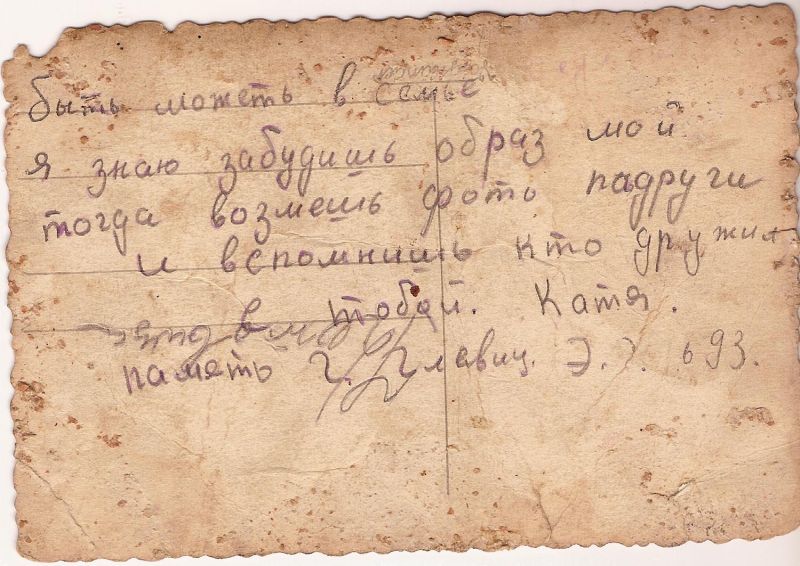 быть можеть в семье
я знаю забудишь образ мой
тогда возмешь фото падруги
и вспомнишь кто дружил
тобой. Катя.
в
паметь Г. Э. 693.